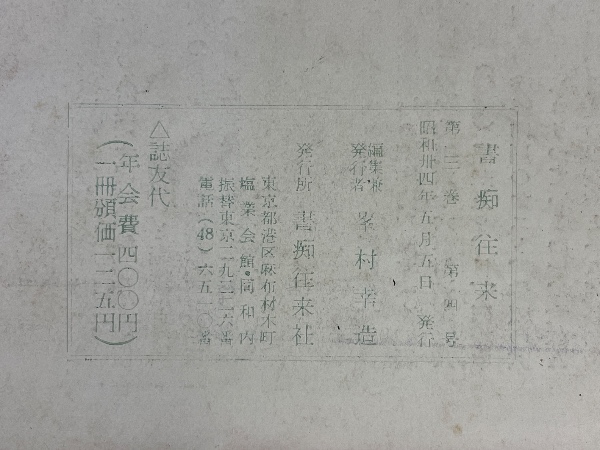 書痴往来
第三巻 第四号
昭和卅四年五月五日 発行
編集兼
発行者 峯村幸造
発行所 書痴往来社
東京都港区麻布材木町
塩業会館・同和内
振替東京二九三二六番
電話(48)六五一〇番
△誌友代
(年会費四〇〇円
一冊頒価一二五円)